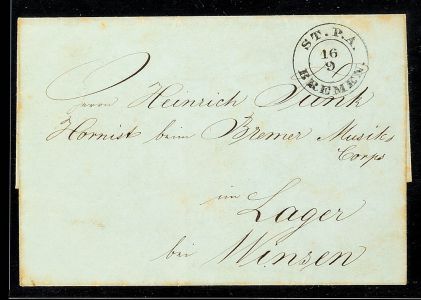 ST. P. A.
16
9
BREMEN.
Herrn Heinrich
Hornist beim Bremer Musik
Corps
im
Lager
bei
Winsen